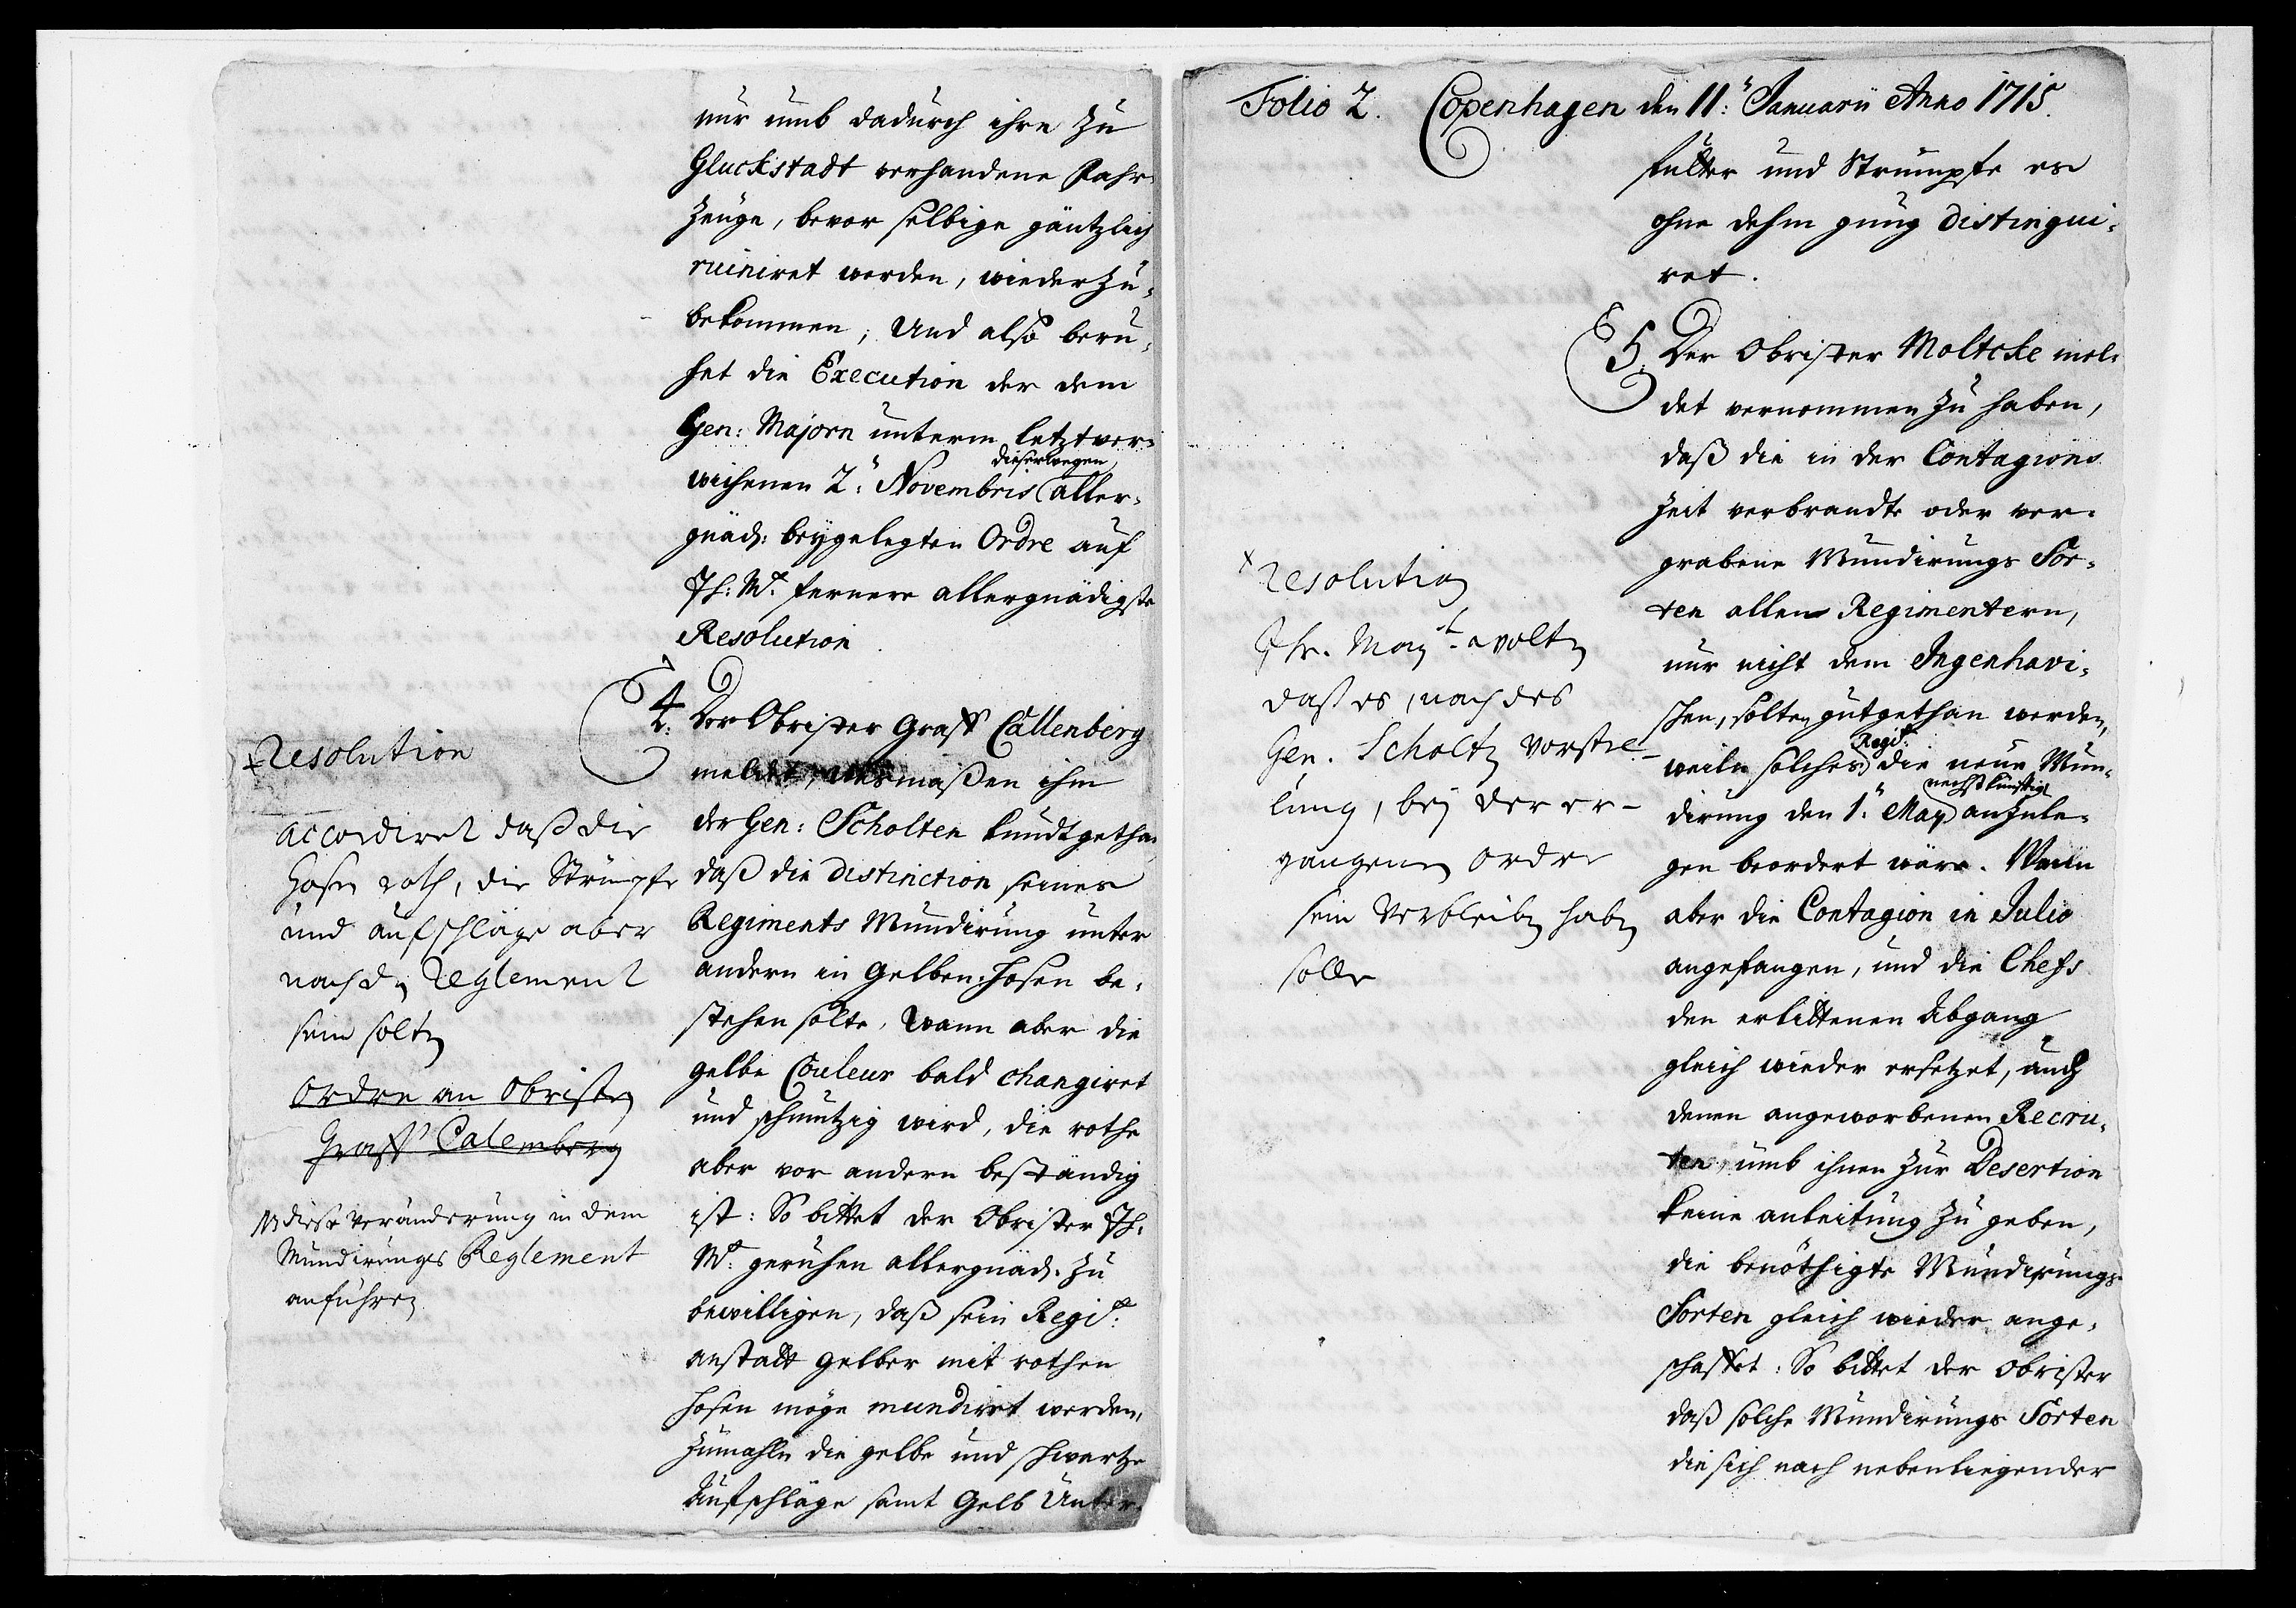 nur umb dadurch ihre zu
Gluckstadt verhandene Fahr-
zeuge, bevor selbige gäntzlich
ruiniret werden, wieder zu-
bekommen; Und also beru-
het die Execution der dem
Gen: Majorn unterm letztver-
wichenen 2ten Novembris dieserwegen aller-
gnäd: beygelegten Ordre auf
Ih: Mt: fernere allergnädigste
Resolution.
4. Der Obrister Graff Callenberg
meldet, welchermaßen ihm
der Gen: Scholten kundt gethan
daß die distinction seines
Regiments Mundirung unter
andern in Gelben-Hosen be-
stehen solte. Wann aber die
gelbe Couleur bald changiret
und schmutzig wird, die rothe
aber vor andern beständig
ist: So bittet der Obrister Ih:
Mt: geruhen allergnäd. zu
bewilligen, daß sein Regt:
anstatt gelber mit rothen
Hosen möge mundirt werden,
zumahln die gelbe und schwartze
Aufschläge samt Gelb Unter-
+ Resolution
accordiret daß die
Hosen roth, die Strümpfe
und aufschläge aber
nach dem Reglement
sein solten
Ordre an Obristen
Graff Calemberg
NB diese veränderung in dem
Mundirungs Reglement
anführen
Folio 2. Copenhagen den 11ten Januarii Anno 1715.
futter und Strümpfe es
ohne dehm gnug distingui-
ret.
5. Der Obrister Moltcke mel-
det vernommen zu haben,
daß die in der Contagions
Zeit verbrandte oder ver-
grabene Mundirungs Sor-
ten allen Regimentern,
nur nicht dem Ingenhavi-
schen, solten gutgethan werden,
weiln solches Regt: die neue Mun-
dirung den 1ten May nechstkünftig anzule-
gen beordert wäre. Wann
aber die Contagion in Julio
angefangen, und die Chefs
den erlittenen Abgang
gleich wieder ersetzet, auch
denen angeworbenen Recru-
ten, umb ihnen zur Desertion
keine anleitung zu geben,
die benöthigte Mundirungs
Sorten gleich wieder ange-
schaffet: So bittet der Obrister
daß solche Mundirungs Sorten
die sich nach nebenliegender
+ Resolution
Ihr. Mayt. wolten
daß es, nach des
Gen. Scholten vorstel-
lung, bey der er-
gangenen ordre
sein Verbleiben haben
solle